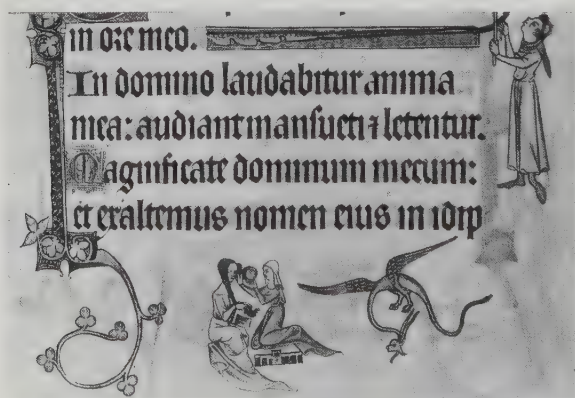 in ore meo.
In domino laudabitur anima
mea: audiant mansueti ⁊ letentur.
Magnificate dominum mecum:
et exaltemus nomen eius in idip